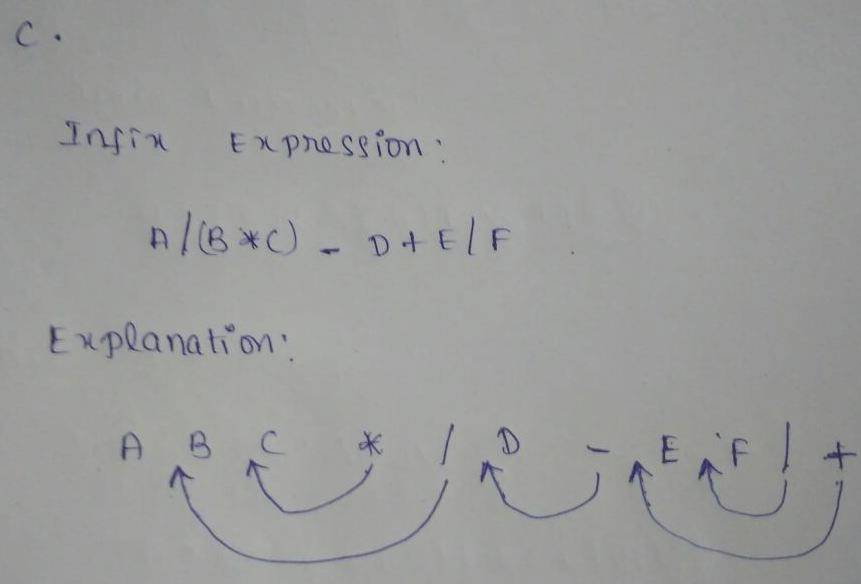 C.
Infix Expression:
A/(B*C) - D+E/F
Explanation:
A B C * / D - E F / +